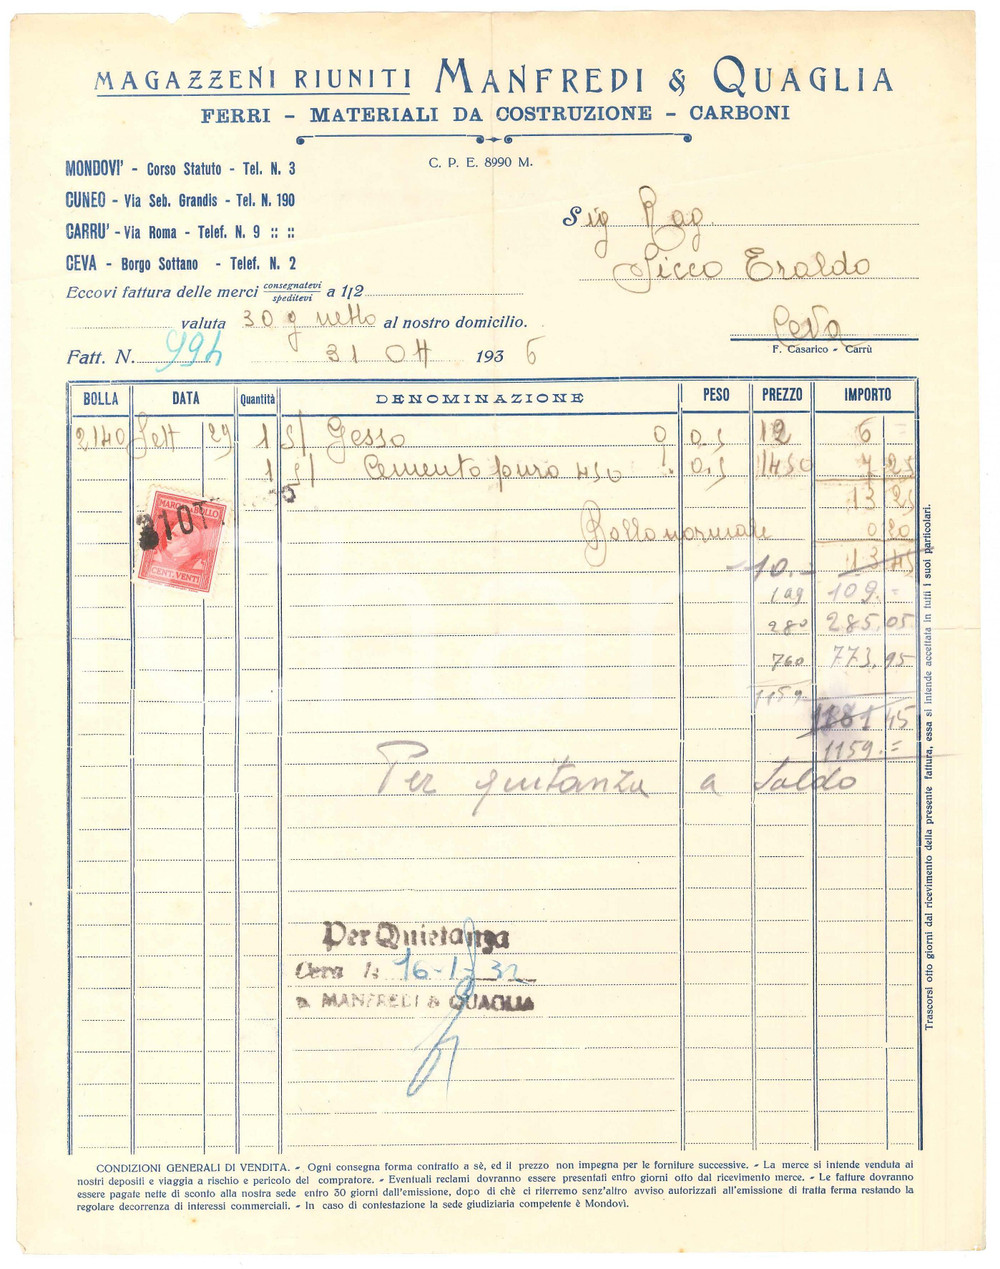 MAGAZZENI RIUNITI MANFREDI & QUAGLIA
FERRI - MATERIALI DA COSTRUZIONE - CARBONI
C. P. E. 8990 M.
MONDOVI' - Corso Statuto - Tel. N. 3
CUNEO - Via Seb. Grandis - Tel. N. 190
CARRU' - Via Roma - Telef. N. 9 :: ::
CEVA - Borgo Sottano - Telef. N. 2
Sig Rag.
Sicco Eraldo
Ceva
Eccovi fattura delle merci consegnatevi speditevi a 1/2
valuta 30 g netto al nostro domicilio.
Fatt. N. 994 31 Ott 1936
F. Casarico - Carrù
BOLLA DATA Quantità DENOMINAZIONE PESO PREZZO IMPORTO
2140 Sett 29 1 S/ Gesso 0,5 12 6 =
1 S/ Cemento puro 450 0,5 1450 7 25
13 25
MARCA DA BOLLO
31 OTT
CENT. VENTI
Bollo normale 0 20
10.= 13 45
109 109.=
280 285,05
760 773,95
1159 1181 45
1159.=
Per quitanza a Saldo
Per Quietanza
Ceva li 16-1-37
p. MANFREDI & QUAGLIA
Trascorsi otto giorni dal ricevimento della presente fattura, essa si intende accettata in tutti i suoi particolari.
CONDIZIONI GENERALI DI VENDITA. - Ogni consegna forma contratto a sè, ed il prezzo non impegna per le forniture successive. - La merce si intende venduta ai
nostri depositi e viaggia a rischio e pericolo del compratore. - Eventuali reclami dovranno essere presentati entro giorni otto dal ricevimento merce. - Le fatture dovranno
essere pagate nette di sconto alla nostra sede entro 30 giorni dall'emissione, dopo di chè ci riterremo senz'altro avviso autorizzati all'emissione di tratta ferma restando la
regolare decorrenza di interessi commerciali. - In caso di contestazione la sede giudiziaria competente è Mondovì.